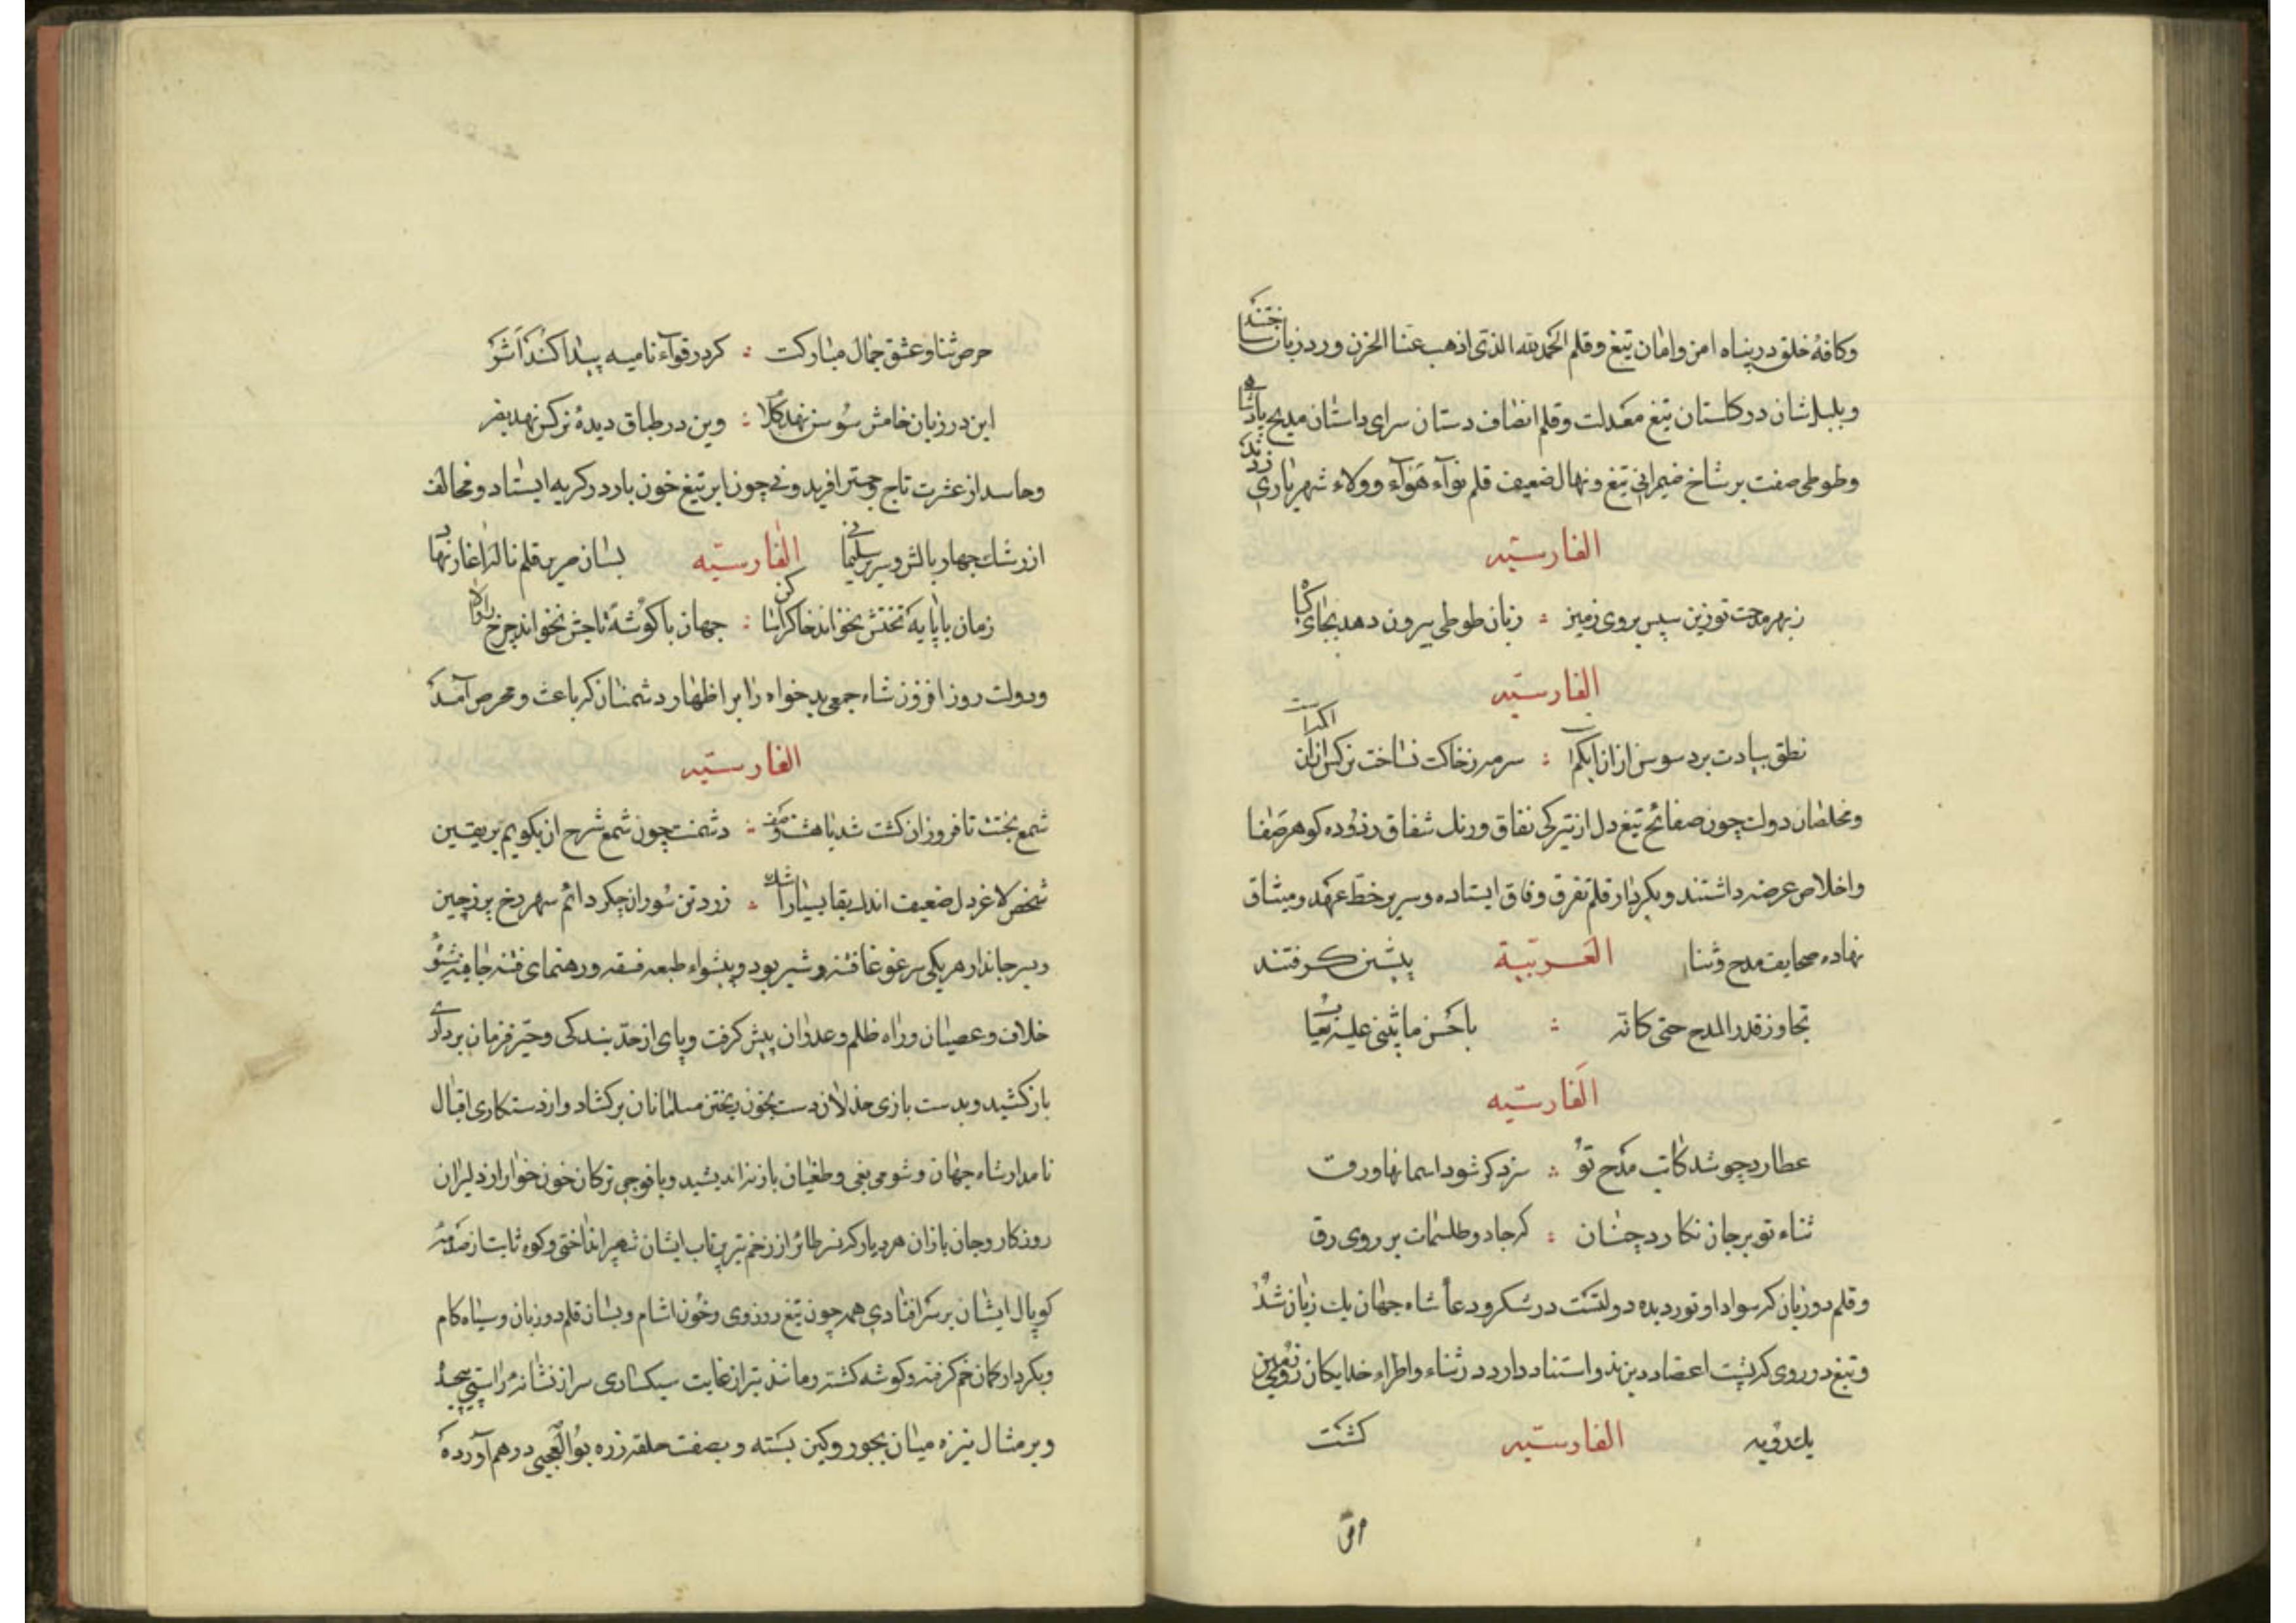 وکافهٔ خلق در پناه امن وامان تیغ وقلم الحمد لله الذی اذهب عنا الحزن ورد زبان ساختند
وبلبل سان در کلستان تیغ معدلت وقلم انصاف دستان سرای داستان مدیح پادشاهی
وطوطی صفت بر شاخ ضیمرانی تیغ ونهال ضعیف قلم نوآء هوآء وولاء شهریاری زدند
الفارسیّه
ز بهر مدحت تو زین سپس بروی زمین ؞ زبان طوطی بیرون دهد بجای کیا
الفارسیّه
نطق بیادت برد سوسن ازان ابکم است ؞ سرمه ز خاکت نساخت نرکس ازان اکمه است
ومخلصان دولت چون صفائح تیغ دل از تیرکی نفاق ورنک شقاق زدوده کوهر صفا
واخلاص عرضه داشتند وبکردار قلم بفرق وفاق ایستاده وسر بر خط عهد ومیثاق
نهاده صحایف مدح وثنا العربیّة پیش کرفتند
تجاوز قدر المدح حتی کانّه ؞ باحسن ما یثنی علیه یعاب
الفارسیّه
عطارد چو شد کاتب مدح تو ؞ سزد کر شود اسمانها ورق
ثناء تو بر جان نکارد چنان ؞ که جادو طلسمات بر روی رق
وقلم دو زبان که سواد او نور دیده دولتست در شکر ودعاء شاه جهان یک زبان شد
وتیغ دو روی که پشت اعضاد دین بدو استناد دارد در ثناء واطراء خدایکان روی زمین
یک رویه الفارسیّه کشت
حرص ثنا وعشق جمال مبارکت ؞ کرد در قوآء نامیه پیدا کند اثر
این در زبان خامش سوسن نهد کلام ؞ وین در طباق دیدهٔ نرکس نهد بصر
وحاسد از عشرت تاج وچتر افریدونی چون ابر تیغ خون بار در کریه ایستاد ومخالف
از رشک چهار بالش وسریر سلیمانی الفارسیّه بسان صریر قلم ناله آغاز نهاد
زمان با پایهٔ تختش نخواند خاک را ساکن ؞ جهان با کوشهٔ تاجش نخواند چرخ را والا
ودولت روز افزون شاه جمعی بدخواه را بر اظهار دشمنان که باعث ومحرص آمد
الفارسیّه
شمع بختت تا فروزان کشت شد با هشت وصف ؞ دشمنت چون شمع شرح ان بکویم بر یقین
شخص لاغر دل ضعیف اندک بقا بسیار اشک ؞ زرد تن سوزان جکر دائم سهر رخ بر ز چین
وسر جاندار هر یکی سر غوغا فتنه وشر بود وپیشواء طبعه فسقه ورهنمای فتنه جافیه شیوه
خلاف وعصیان وراه ظلم وعدوان پیش کرفت وپای از حدّ بندکی وحیّز فرمان برداری
باز کشید وبدست بازی خذلان دست بخون ریختن مسلمانان بر کشاد واز دستکاری اقبال
نامدار شاه جهان وشومی بغی وطغیان باز نه اندیشید وبا فوجی ترکان خون خوار از دلیران
روزکار وجان بازان هر دیار که نسر طائر از زخم تیر پرتاب ایشان شهپر انداختی وکوه ثابت از صدمهٔ
کوپال ایشان بر سر افتادی همه چون تیغ دو روی وخون اشام وبسان قلم دو زبان وسیاه کام
وبکردار کمان خم کرفته وکوشه کشته ومانند تیر از غایت سبکساری سر از نشانهٔ راستی پیچیده
وبر مثال نیزه میان بجور وکین بسته وبصفت حلقه زره بوالعجبی در هم آورده